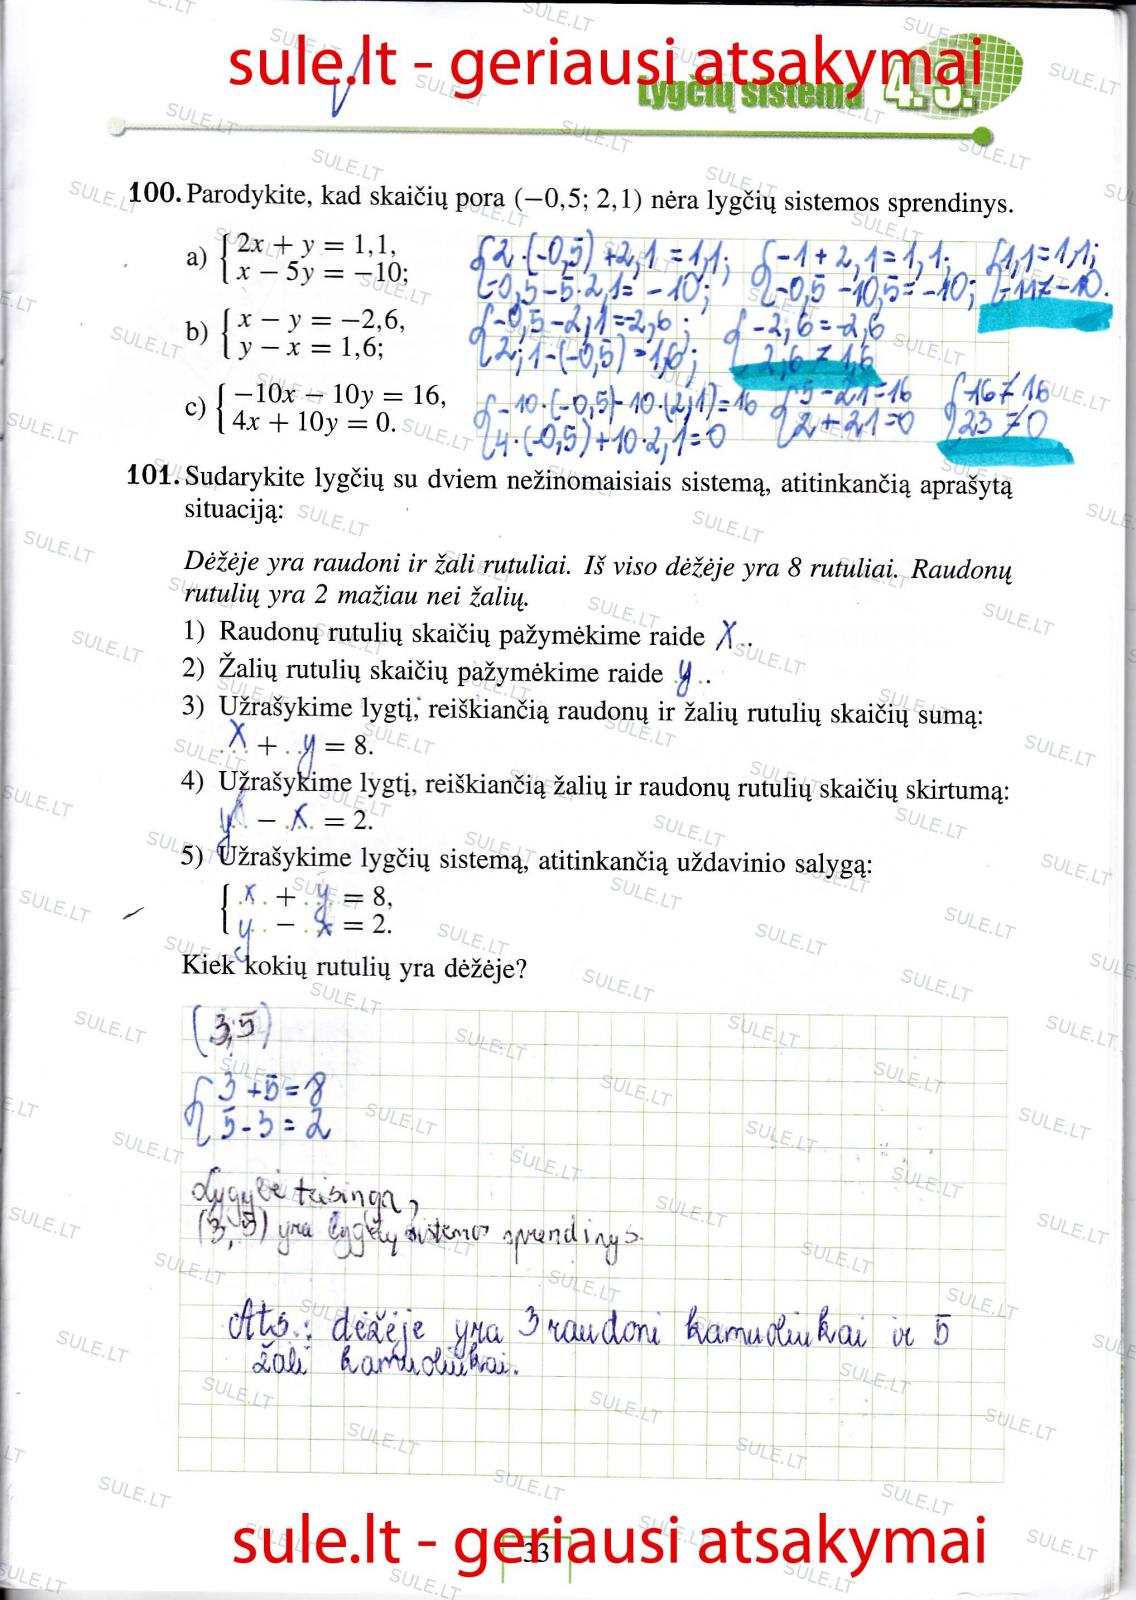 sule.lt - geriausi atsakymai
Lygčių sistema 4.3.
100. Parodykite, kad skaičių pora (−0,5; 2,1) nėra lygčių sistemos sprendinys.
a) { 2x + y = 1,1,
x − 5y = −10;
{ 2·(-0,5)+2,1=1,1;
-0,5-5·2,1=-10;
{ -1+2,1=1,1;
-0,5-10,5=-10;
{ 1,1=1,1;
-11≠-10.
b) { x − y = −2,6,
y − x = 1,6;
{ -0,5-2,1=-2,6;
2,1-(-0,5)=1,6;
{ -2,6=-2,6
2,6≠1,6
c) { −10x − 10y = 16,
4x + 10y = 0.
{ -10·(-0,5)-10·(2,1)=16
4·(-0,5)+10·2,1=0
{ 5-21=16
2+21=0
{ -16≠16
23≠0
101. Sudarykite lygčių su dviem nežinomaisiais sistemą, atitinkančią aprašytą
situaciją:
Dėžėje yra raudoni ir žali rutuliai. Iš viso dėžėje yra 8 rutuliai. Raudonų
rutulių yra 2 mažiau nei žalių.
1) Raudonų rutulių skaičių pažymėkime raide x..
2) Žalių rutulių skaičių pažymėkime raide y..
3) Užrašykime lygtį, reiškiančią raudonų ir žalių rutulių skaičių sumą:
x + y = 8.
4) Užrašykime lygtį, reiškiančią žalių ir raudonų rutulių skaičių skirtumą:
y − x = 2.
5) Užrašykime lygčių sistemą, atitinkančią uždavinio salygą:
{ x + y = 8,
y − x = 2.
Kiek kokių rutulių yra dėžėje?
(3,5)
{ 3+5=8
5-3=2
Lygybė teisinga,
(3,5) yra lygčių sistemos sprendinys.
Ats.: dėžėje yra 3 raudoni kamuoliukai ir 5
žali kamuoliukai.
sule.lt - geriausi atsakymai
33